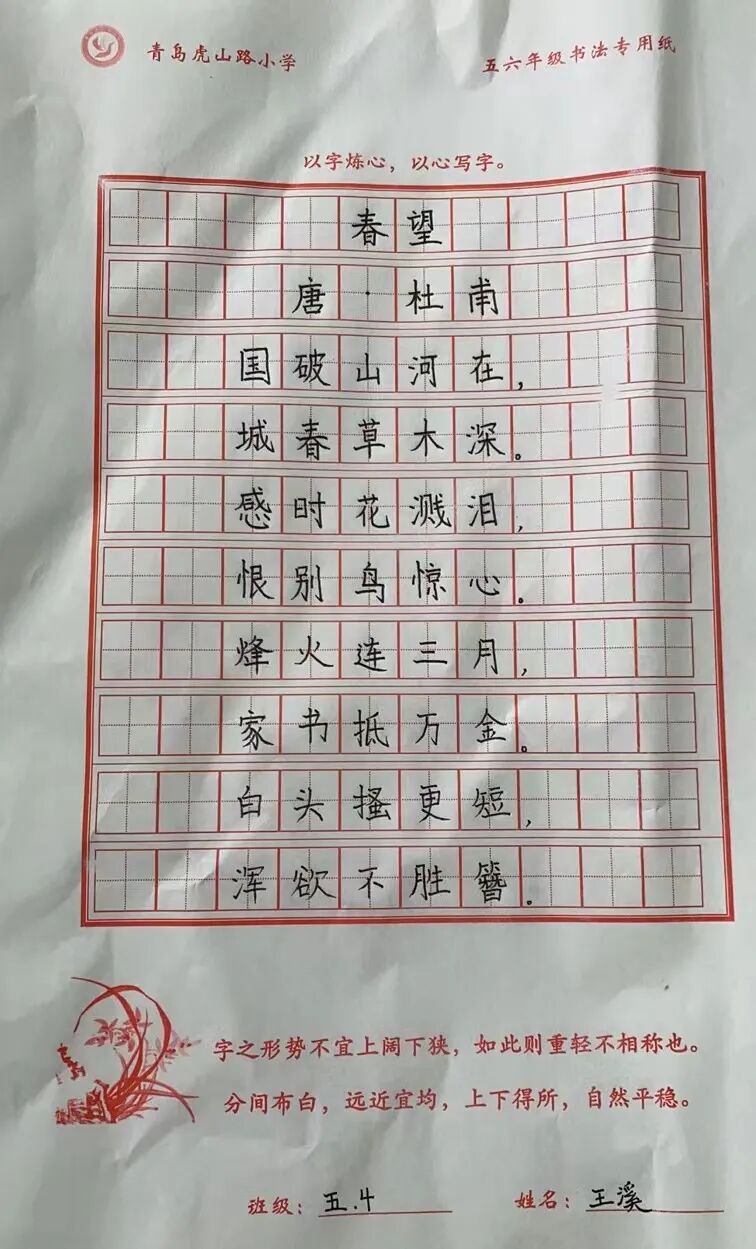 青岛虎山路小学 五六年级书法专用纸
以字炼心，以心写字。
春望
唐·杜甫
国破山河在，
城春草木深。
感时花溅泪，
恨别鸟惊心。
烽火连三月，
家书抵万金。
白头搔更短，
浑欲不胜簪。
字之形势不宜上阔下狭，如此则重轻不相称也。
分间布白，远近宜均，上下得所，自然平稳。
班级：五.4 姓名：王溪